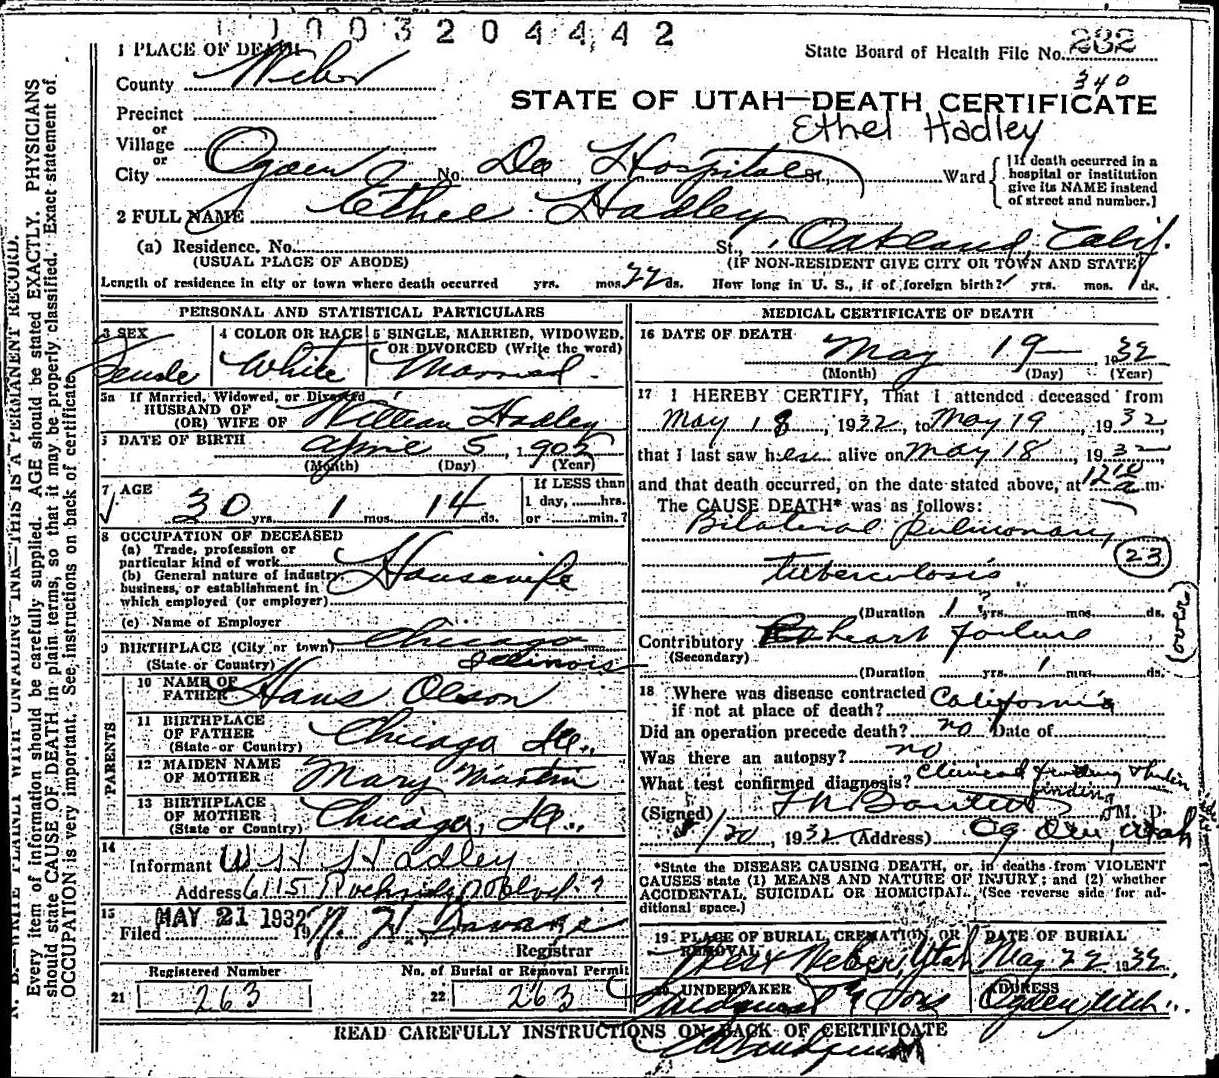 1 0 0 3 2 0 4 4 4 2
1 PLACE OF DEATH
State Board of Health File No. 232
340
County Weber
STATE OF UTAH—DEATH CERTIFICATE
Precinct
or
Ethel Hadley
Village
or
City Ogden No. Dee Hospital St., Ward
{If death occurred in a hospital or institution give its NAME instead of street and number.}
2 FULL NAME Ethel Hadley
(a) Residence. No. St., Oakland, Calif.
(USUAL PLACE OF ABODE) (IF NON-RESIDENT GIVE CITY OR TOWN AND STATE)
Length of residence in city or town where death occurred yrs. mos. 22 ds. How long in U. S., if of foreign birth? yrs. mos. ds.
PERSONAL AND STATISTICAL PARTICULARS
3 SEX Female
4 COLOR OR RACE White
5 SINGLE, MARRIED, WIDOWED, OR DIVORCED (Write the word) Married
5a If Married, Widowed, or Divorced
HUSBAND OF
(OR) WIFE OF William Hadley
6 DATE OF BIRTH April 5, 1902
(Month) (Day) (Year)
7 AGE 30 yrs. 1 mos. 14 ds.
If LESS than 1 day, hrs. or min.?
8 OCCUPATION OF DECEASED
(a) Trade, profession or particular kind of work
Housewife
(b) General nature of industry, business, or establishment in which employed (or employer)
(c) Name of Employer
9 BIRTHPLACE (City or town) Chicago
(State or Country) Illinois
PARENTS
10 NAME OF FATHER Hans Olson
11 BIRTHPLACE OF FATHER (State or Country) Chicago Ill.
12 MAIDEN NAME OF MOTHER Mary Martin
13 BIRTHPLACE OF MOTHER (State or Country) Chicago, Ill.
14 Informant W H Hadley
Address 6115
15 Filed MAY 21 1932
Registrar
Registered Number
21 263
No. of Burial or Removal Permit
22 263
MEDICAL CERTIFICATE OF DEATH
16 DATE OF DEATH May 19 1932
(Month) (Day) (Year)
17 I HEREBY CERTIFY, That I attended deceased from
May 18, 1932, to May 19, 1932
that I last saw her alive on May 18, 1932,
and that death occurred, on the date stated above, at 1210 a m.
The CAUSE DEATH* was as follows:
Bilateral pulmonary
tuberculosis
23
(Duration 1 ? yrs. mos. ds.
Contributory heart failure
(over)
(Secondary)
(Duration yrs. 1 mos. ds.
18 Where was disease contracted if not at place of death? California
Did an operation precede death? no Date of
Was there an autopsy? no
What test confirmed diagnosis? Clinical finding
finding
(Signed) M. D.
/20, 1932 (Address) Ogden, Utah
*State the DISEASE CAUSING DEATH, or, in deaths from VIOLENT CAUSES state (1) MEANS AND NATURE OF INJURY; and (2) whether ACCIDENTAL, SUICIDAL OR HOMICIDAL. (See reverse side for additional space.)
19 PLACE OF BURIAL CREMATION OR REMOVAL West Weber, Utah
DATE OF BURIAL May 22 1932
20 UNDERTAKER Lindquist & Sons
ADDRESS Ogden Utah
READ CAREFULLY INSTRUCTIONS ON BACK OF CERTIFICATE
N. B.—WRITE PLAINLY WITH UNFADING INK—THIS IS A PERMANENT RECORD.
Every item of information should be carefully supplied. AGE should be stated EXACTLY. PHYSICIANS
should state CAUSE OF DEATH in plain terms, so that it may be properly classified. Exact statement of
OCCUPATION is very important. See instructions on back of certificate.